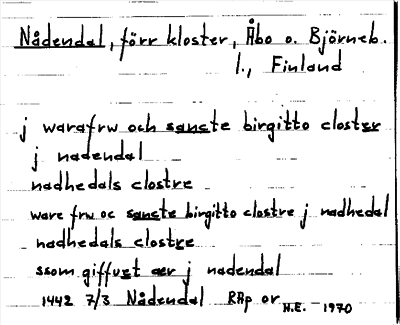 Nådendal, förr kloster, Åbo o. Björneb.
l., Finland
j warafrw och sancte birgitto closter
j nadendal
nadhedals clostre
ware frw oc sancte birgitto clostre j nadhedal
nadhedals clostre
ssom giffuet aer j nadendal
1442 7/3 Nådendal RAp or H.E. 1970